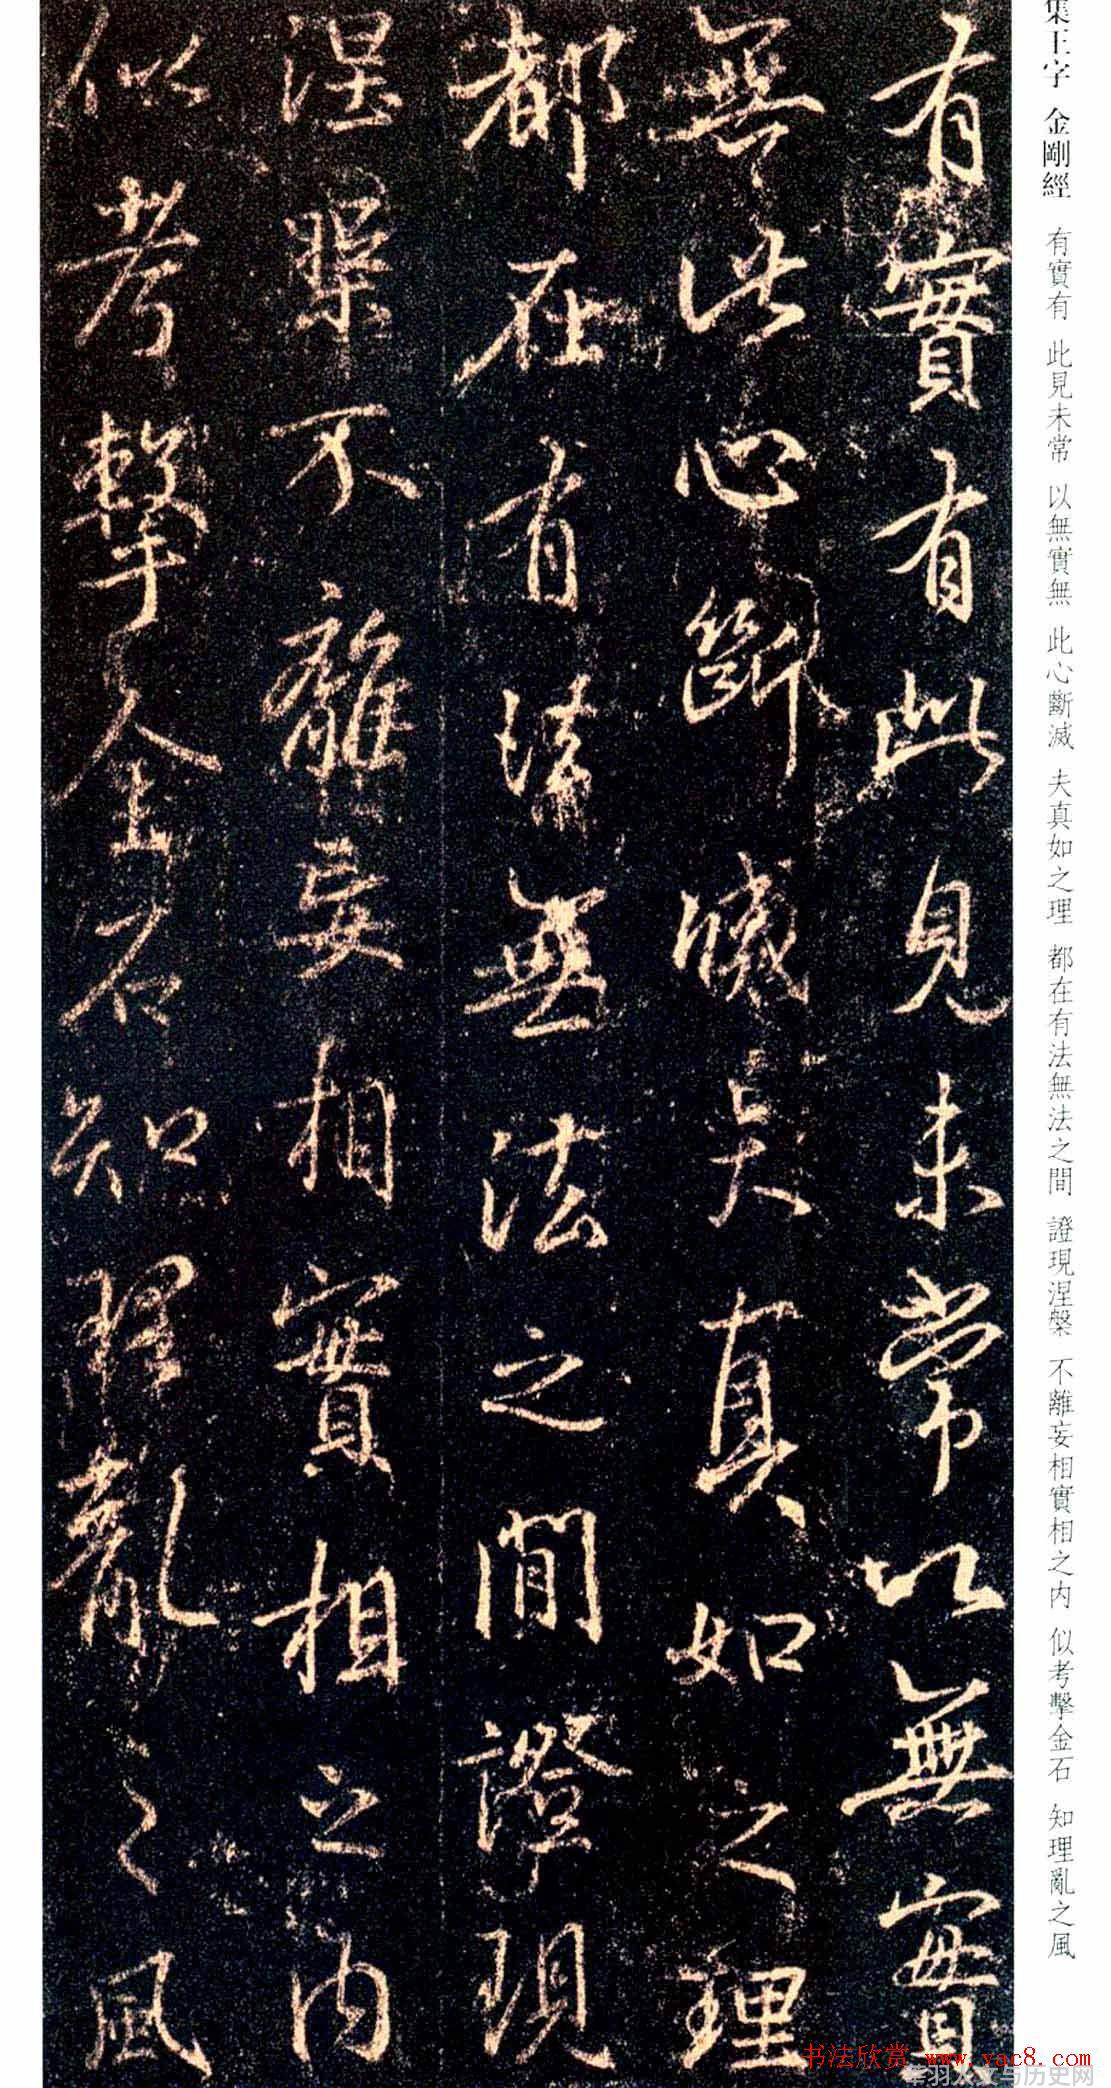 集王字 金剛經 有實有 此見未常 以無實無 此心斷滅 夫真如之理 都在有法無法之間 證現涅槃 不離妄相實相之内 似考擊金石 知理亂之風
有實有此見未常以無實
無此心斷滅夫真如之理
都在有法無法之間證現
涅槃不離妄相實相之内
似考擊金石知理亂之風
书法欣赏 www.yac8.com
羽人文与历史网